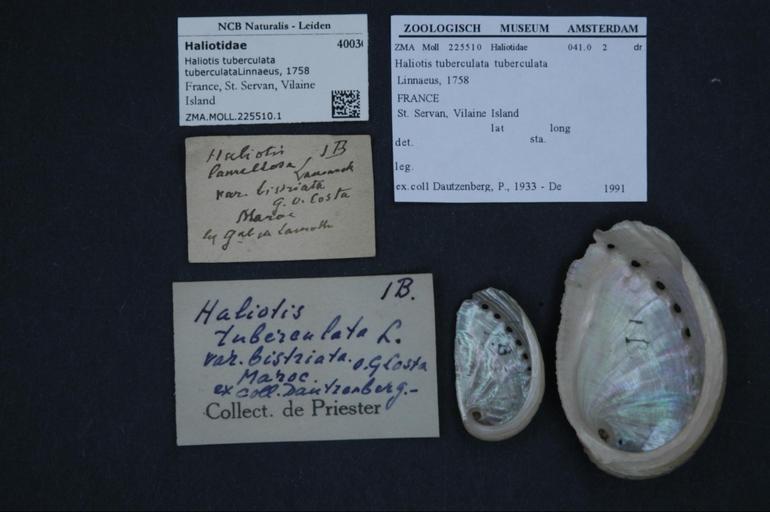 NCB Naturalis - Leiden
Haliotidae 40030
Haliotis tuberculata
tuberculataLinnaeus, 1758
France, St. Servan, Vilaine
Island
ZMA.MOLL.225510.1
ZOOLOGISCH MUSEUM AMSTERDAM
ZMA Moll 225510 Haliotidae 041.0 2 dr
Haliotis tuberculata tuberculata
Linnaeus, 1758
FRANCE
St. Servan, Vilaine Island
lat long
det. sta.
leg.
ex.coll Dautzenberg, P., 1933 - De 1991
Haliotis 1B
lamellosa Lamarck
var. bistriata
g. o. Costa
Maroc
1B.
Haliotis
tuberculata L.
var. bistriata. O.G Costa
Maroc.
ex coll. Dautzenberg.-
Collect. de Priester